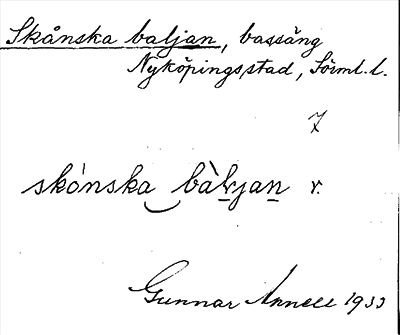 Skånska baljan, bassäng
Nyköpings stad, Söiml. l.
7
skónska bàljan r.
Gunnar Annell 1933